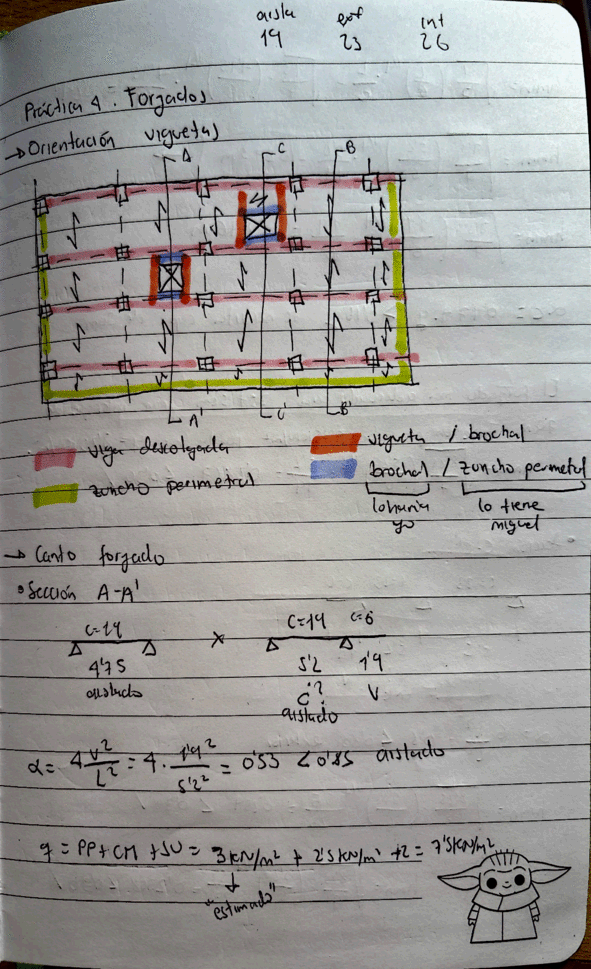 aisla ext int
19 23 26
Práctica 4. Forjados
→ Orientación viguetas
A C B
A' C' B'
viga descolgada
zuncho perimetral
vigueta / brochal
brochal / zuncho perimetral
lo haria yo
lo tiene miguel
→ Canto forjado
• Sección A-A'
C=19 × C=19 C=6
4'75 5'2 1'9
aislado C? V
aislado
α = 4 V²/L² = 4 · 1'9²/5'2² = 0'53 < 0'85 aislado
q = PP + CM + SU = 3 KN/m² + 2'5 KN/m² + 2 = 7'5 KN/m²
"estimado"